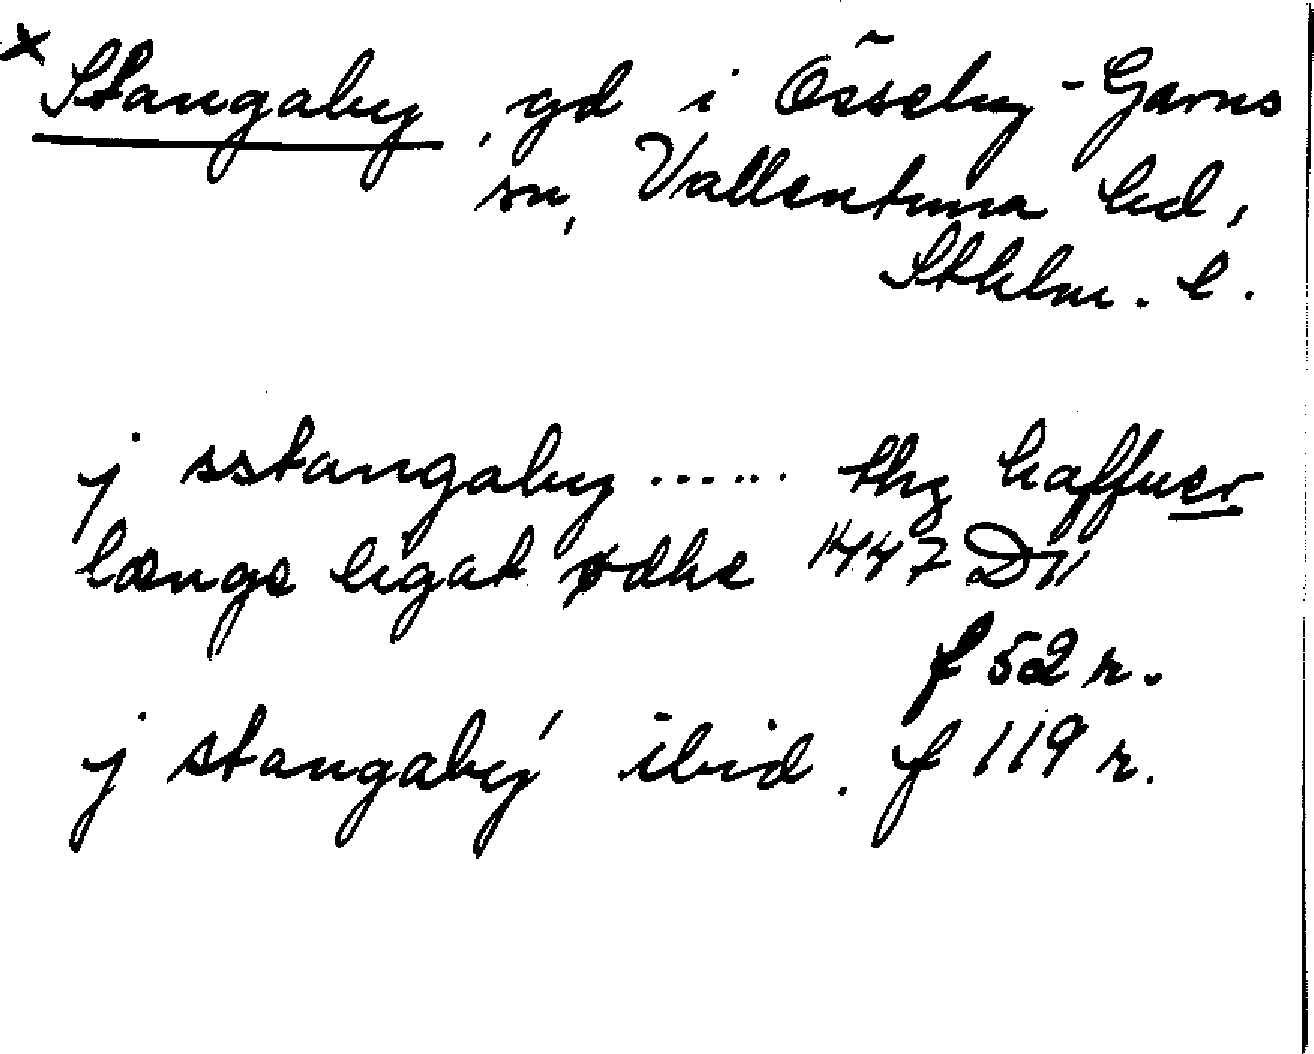 x Stangaby, gd i Össeby-Garns
sn, Vallentuna hd,
Sthlm. l.
j sstangaby...... thz haffuer
længe ligat ødhe 1447 D11
f 52 r.
j stangabÿ ibid. f 119 r.